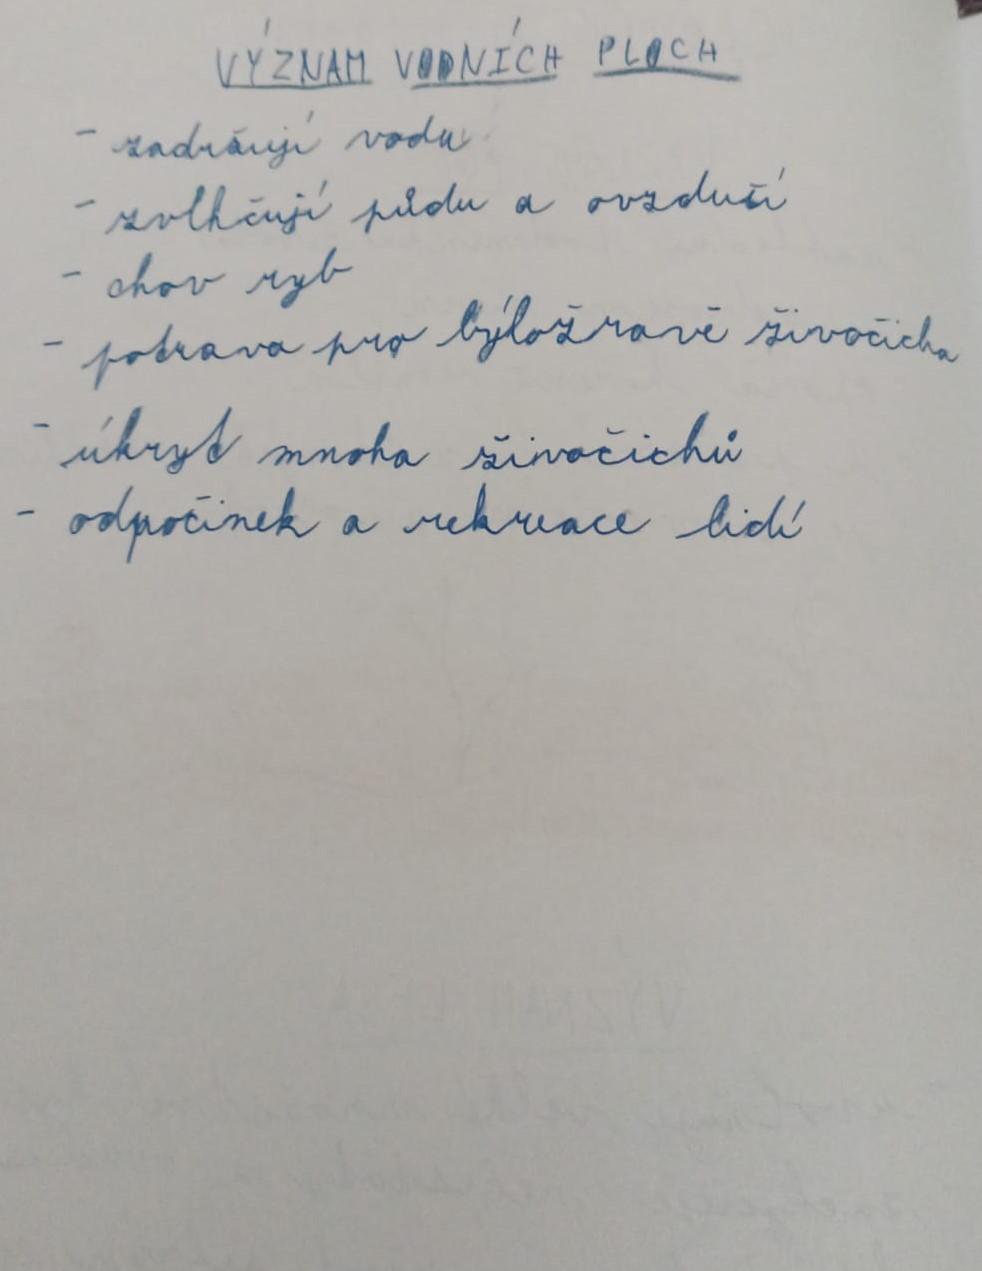 VÝZNAM VODNÍCH PLOCH
- zadržují vodu
- zvlhčují půdu a ovzduší
- chov ryb
- potrava pro býložravé živočicha
- úkryt mnoha živočichů
- odpočinek a rekreace lidí